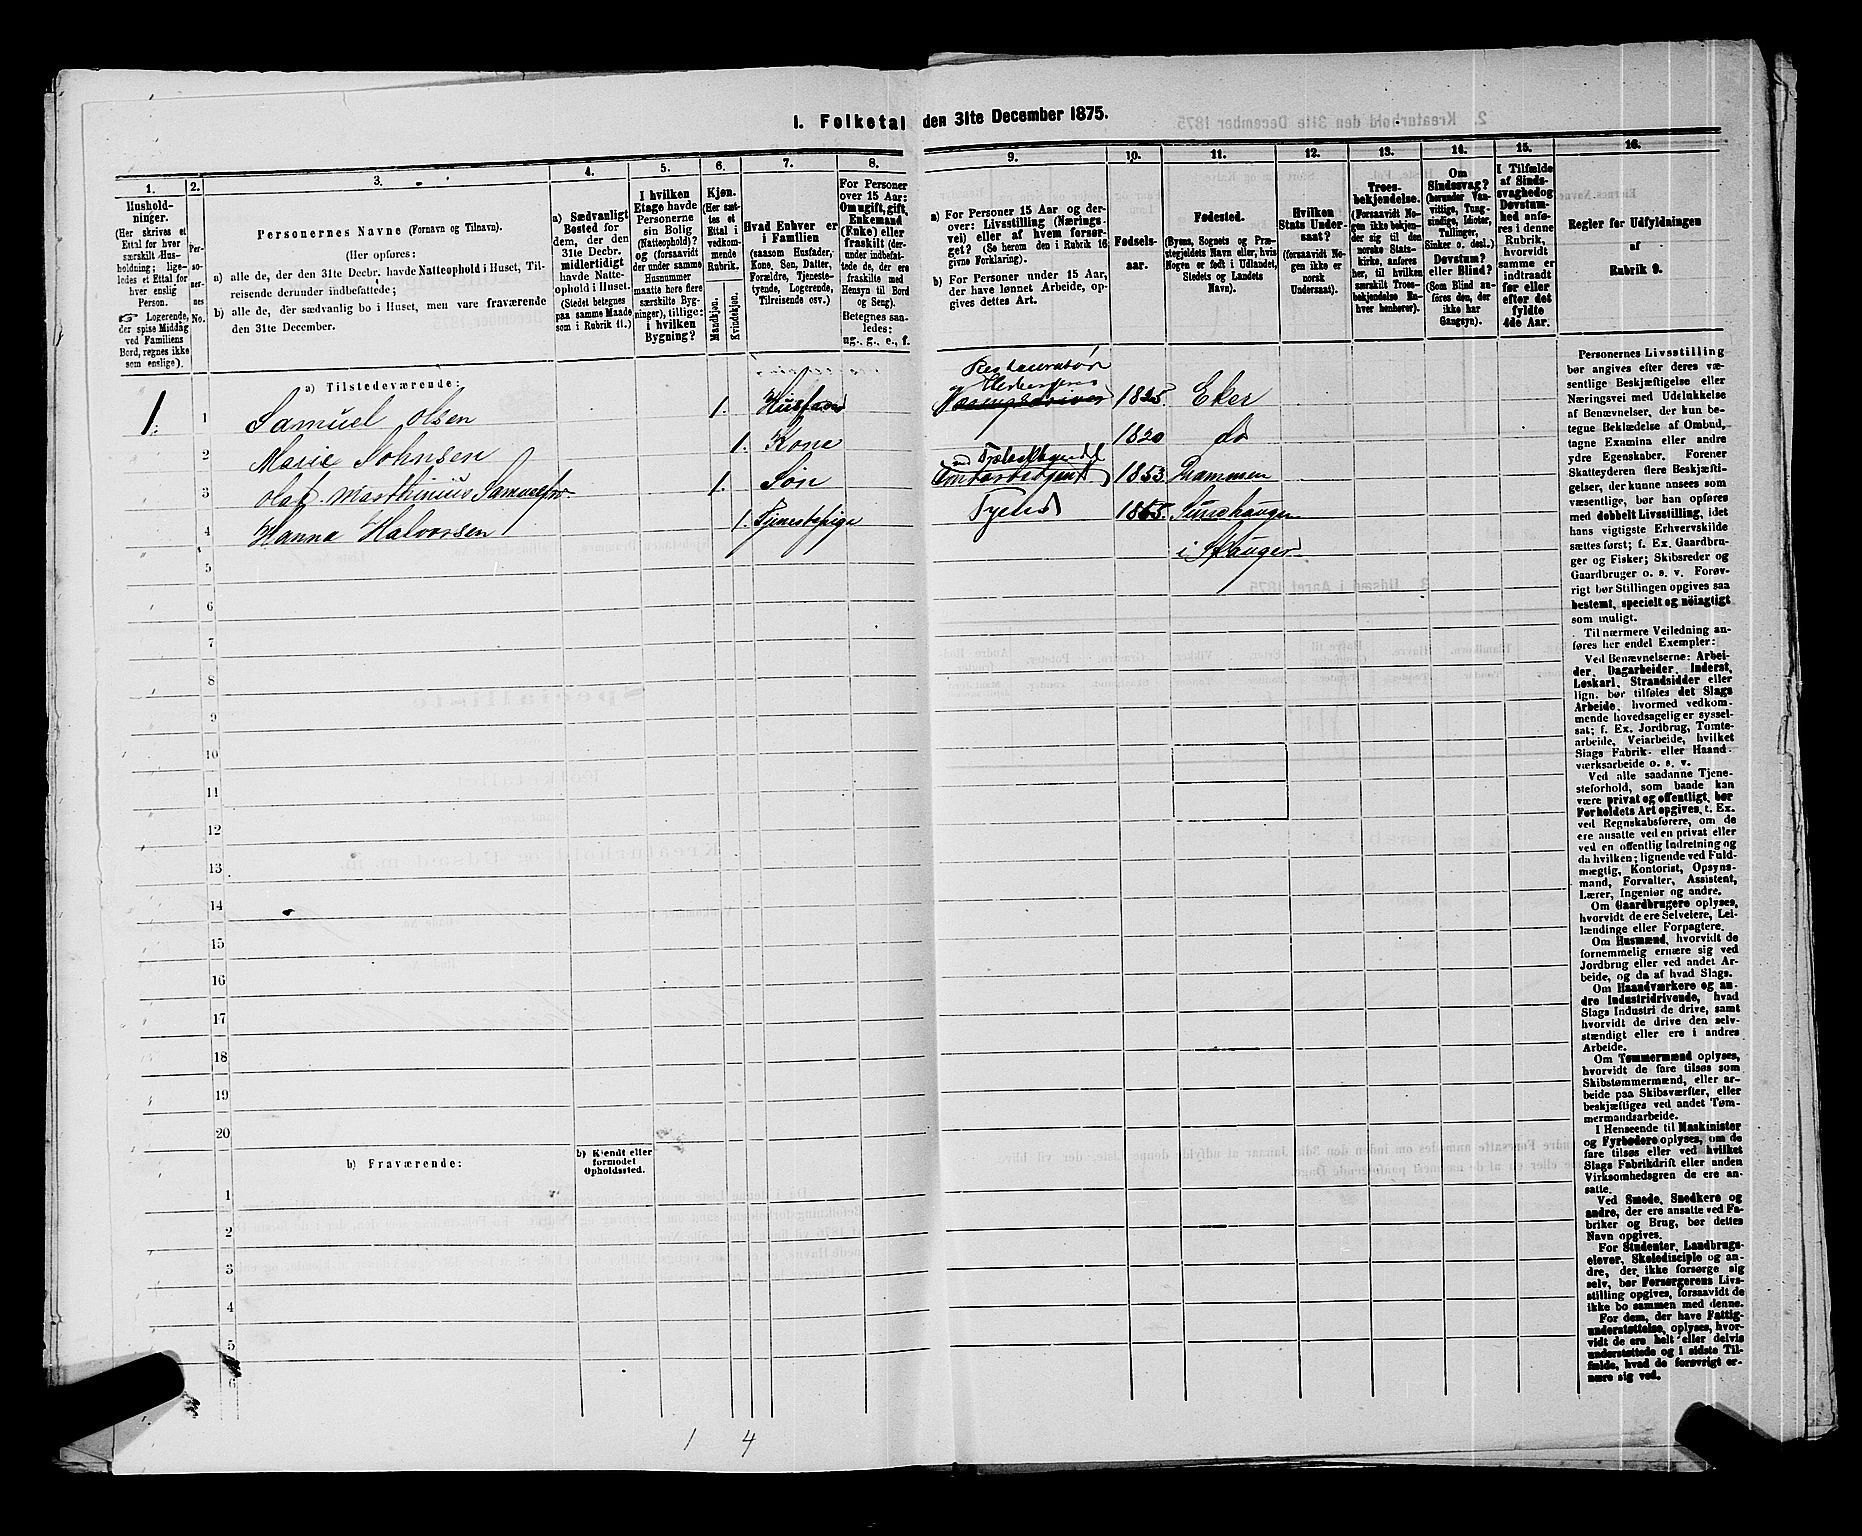 1. Folketal den 31te December 1875.
1.
Hushold-
ninger.
(Her skrives et
Ettal for hver
særskilt Hus-
holdning; lige-
ledes et Ettal for
hver enslig
Person.
☞ Logerende,
der spise Middag
ved Familiens
Bord, regnes ikke
som enslige).
2.
Per-
so-
ner-
nes
No.
3.
Personernes Navne (Fornavn og Tilnavn).
(Her opføres:
a) alle de, der den 31te Decbr. havde Natteophold i Huset, Til-
reisende derunder indbefattede;
b) alle de, der sædvanlig bo i Huset, men vare fraværende
den 31te December.
4.
a) Sædvanligt
Bosted for
dem, der den
31te Decbr.
midlertidigt
havde Natte-
ophold i Huset.
(Stedet betegnes
paa samme Maade
som i Rubrik 11.)
5.
I hvilken
Etage havde
Personerne
sin Bolig
(Natteophold)?
og (forsaavidt
der under samme
Husnummer
maatte høre flere
særskilte Byg-
ninger), tillige:
i hvilken
Bygning?
6.
Kjøn.
(Her sæt-
tes et
Ettal i
vedkom-
mende
Rubrik.
Mandkjøn.
Kvindekjøn.
7.
Hvad Enhver er
i Familien
(saasom Husfader,
Kone, Søn, Datter,
Forældre, Tjeneste-
tyende, Logerende,
Tilreisende osv.)
8.
For Personer
over 15 Aar:
Om ugift, gift,
Enkemand
(Enke) eller
fraskilt (der-
under indbefat-
tede de, der ere
fraskilte med
Hensyn til Bord
og Seng).
Betegnes saa-
ledes:
ug., g., e., f.
9.
a) For Personer 15 Aar og der-
over: Livsstilling (Nærings-
vei) eller af hvem forsør-
get? (Se herom den i Rubrik 16
givne Forklaring).
b) For Personer under 15 Aar,
der have lønnet Arbeide, op-
gives dettes Art.
10.
Fødsels-
aar.
11.
Fødested.
(Byens, Sognets og Præ-
stegjeldets Navn eller, hvis
Nogen er født i Udlandet,
Stedets og Landets
Navn).
12.
Hvilken
Stats Under-
saat?
(forsaavidt No-
gen ikke er
norsk
Undersaat).
13.
Troes-
bekjendelse.
(Forsaavidt No-
gen ikke bekjen-
der sig til den
norske Stats-
kirke, anføres
her, til hvilken
særskilt Troes-
bekjendelse En-
hver henhører).
14.
Om
Sindssvag?
(herunder Van-
vittige, Tung-
sindige, Idioter,
Tullinger,
Sinker o. desl.)
Døvstum?
eller Blind?
(Som Blind an-
føres den, der
ikke har
Gangsyn).
15.
I Tilfælde
af Sinds-
svaghed og
Døvstum-
hed anfø-
res i denne
Rubrik,
hvorvidt
samme er
indtraadt
før eller
efter det
fyldte
4de Aar.
16.
Regler for Udfyldningen
af
Rubrik 9.
a) Tilstedeværende:
1. 1 Samuel Olsen 1. Husfader Restauratør
og 1825. Eker
2 Marie Johnsen 1. Kone 1820 do
3 Olaf Marthinius Samuelsen 1. Søn 1853. Drammen
4 Hanna Halvorsen 1. Tjenestepige Tyende 1855. Sundhaugen
i Skauger
5
6
7
8
9
10
11
12
13
14
15
16
17
18
19
20
b) Fraværende:
b) Kjendt eller
formodet
Opholdssted.
1
2
3
4
5
6
1 4
Personernes Livsstilling
bør angives efter deres væ-
sentlige Beskjæftigelse eller
Næringsvei med Udelukkelse
af Benævnelser, der kun be-
tegne Beklædelse af Ombud,
tagne Examina eller andre
ydre Egenskaber. Forener
Skatteyderen flere Beskjæfti-
gelser, der kunne ansees som
væsentlige, bør han opføres
med dobbelt Livsstilling, idet
hans vigtigste Erhvervskilde
sættes først; f. Ex. Gaardbru-
ger og Fisker; Skibsreder og
Gaardbruger o. s. v. Forøv-
rigt bør Stillingen opgives saa
bestemt, specielt og nøiagtigt
som muligt.
Til nærmere Veiledning an-
føres her endel Exempler:
Ved Benævnelserne: Arbei-
der, Dagarbeider, Inderst,
Løskarl, Strandsidder eller
lign. bør tilføies det Slags
Arbeide, hvormed vedkom-
mende hovedsagelig er syssel-
sat; f. Ex. Jordbrug, Tomte-
arbeide, Veiarbeide, hvilket
Slags Fabrik- eller Haand-
værksarbeide o. s. v.
Ved alle saadanne Tjene-
steforhold, som baade kan
være privat og offentligt, bør
Forholdets Art opgives, t. Ex.
ved Regnskabsførere, om de
ere ansatte ved en privat eller
ved en offentlig Indretning og
da hvilken; lignende ved Fuld-
mægtig, Kontorist, Opsyns-
mand, Forvalter, Assistent,
Lærer, Ingeniør og andre.
Om Gaardbrugere oplyses,
hvorvidt de ere Selveiere, Lei-
lændinge eller Forpagtere.
Om Husmænd, hvorvidt de
fornemmelig ernære sig ved
Jordbrug eller ved andet Ar-
beide, og da af hvad Slags.
Om Haandværkere og an-
dre Industridrivende, hvad
Slags Industri de drive, samt
hvorvidt de drive den selv-
stændigt eller ere i andres
Arbeide.
Om Tømmermænd oplyses,
hvorvidt de fare tilsøs som
Skibstømmermænd, eller ar-
beide paa Skibsværfter, eller
beskjæftiges ved andet Tøm-
mermandsarbeide.
I Henseende til Maskinister
og Fyrbødere oplyses, om de
fare tilsøs eller ved hvilket
Slags Fabrikdrift eller anden
Virksomhedsgren de ere an-
satte.
Ved Smede, Snedkere og
andre, der ere ansatte ved Fa-
briker og Brug, bør dettes
Navn opgives.
For Studenter, Landbrugs-
elever, Skoledisciple og an-
dre, der ikke forsørge sig
selv, bør Forsørgerens Livs-
stilling opgives, forsaavidt de
ikke bo sammen med denne.
For dem, der have Fattig-
understøttelse, oplyses, hvor-
vidt de ere helt eller delvis
understøttede og i sidste Til-
fælde, hvad de forøvrigt er-
nære sig ved.